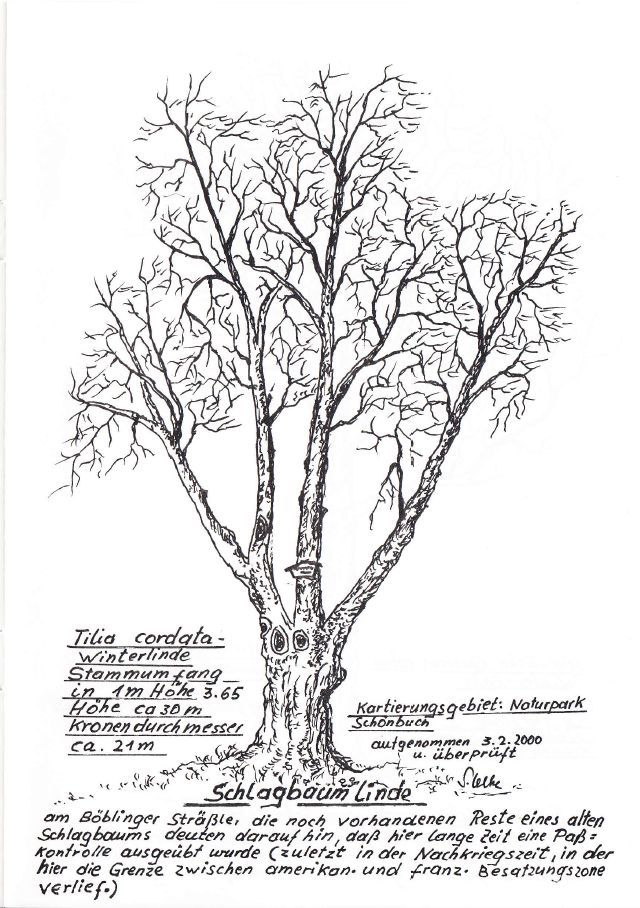 Tilia cordata -
Winterlinde
Stammumfang
in 1m Höhe 3.65
Höhe ca 30m
Kronendurchmesser
ca. 21m
Kartierungsgebiet: Naturpark
Schönbuch
aufgenommen 3.2.2000
u. überprüft
Schlagbaum Linde
am Böblinger Sträßle, die noch vorhandenen Reste eines alten
Schlagbaums deuten darauf hin, daß hier lange Zeit eine Paß=
kontrolle ausgeübt wurde (zuletzt in der Nachkriegszeit, in der
hier die Grenze zwischen amerikan. und franz. Besatzungszone
verlief.)